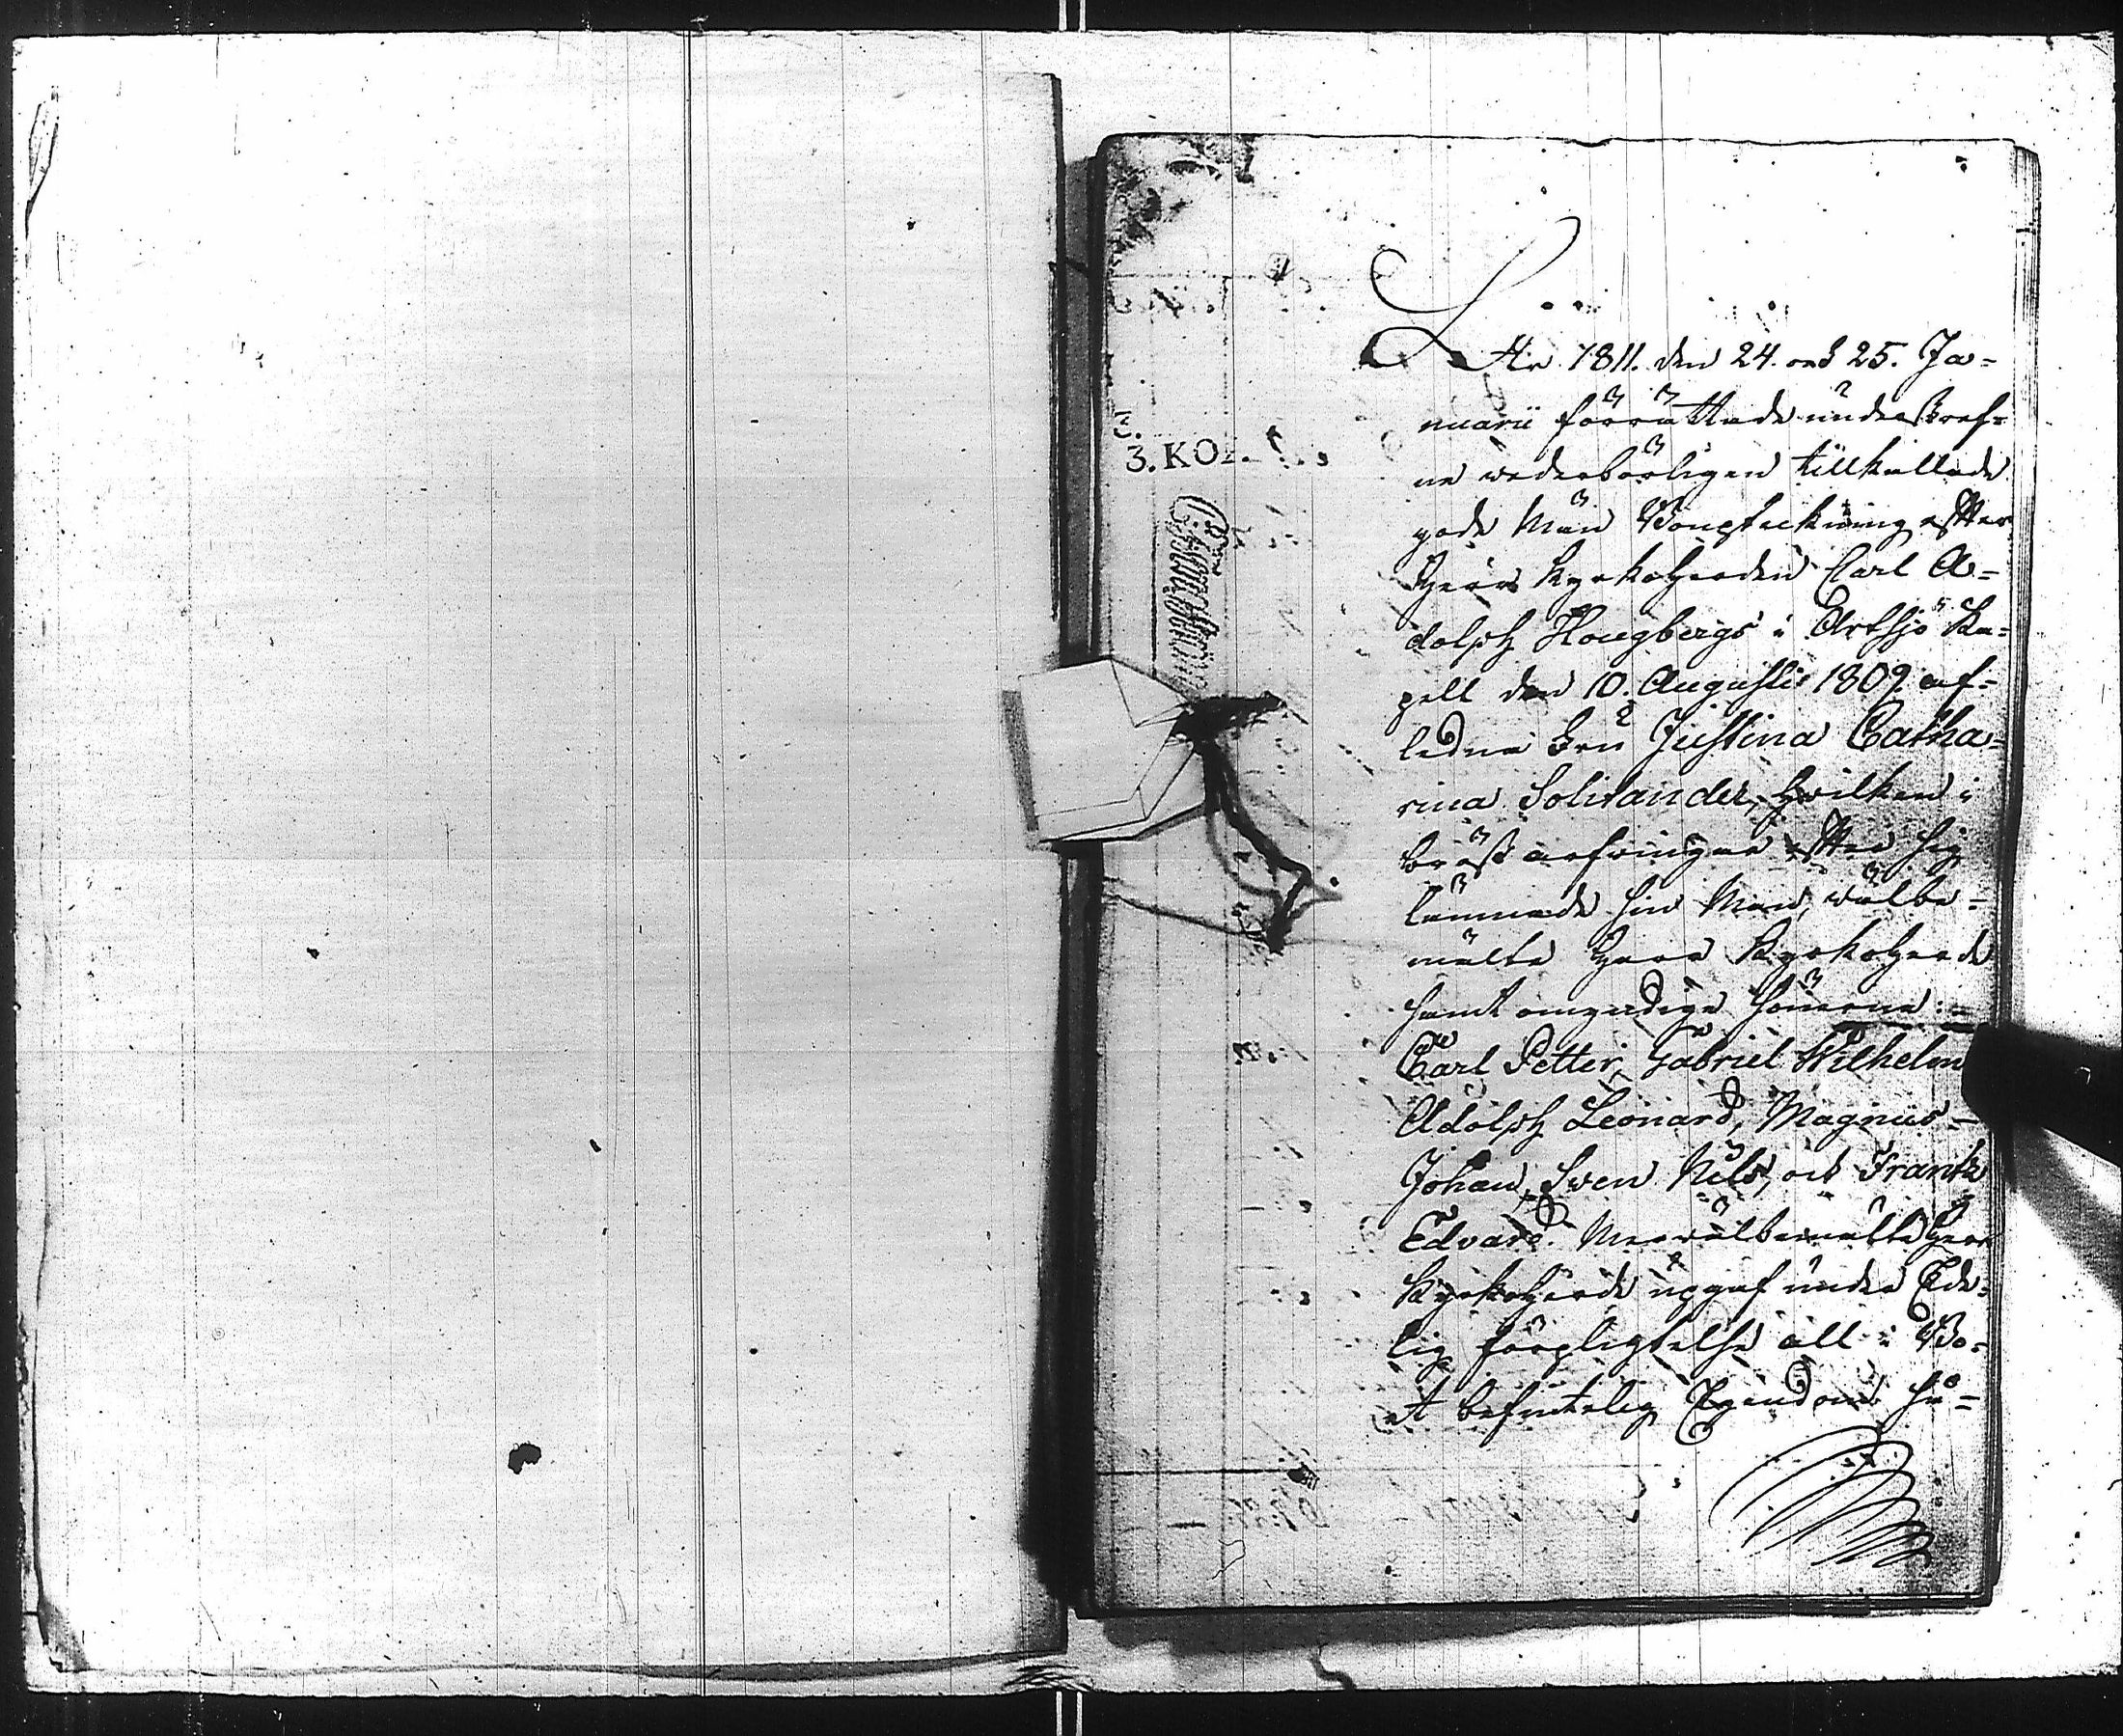 3. KOP.
År 1811. den 24. och 25. Ja-
nuarii förrättade underskref-
ne wederbörligen tillkallade
gode Män Boupteckning efter
Herr Kyrkoherden Carl A-
dolph Hougbergs i Artsjö Ka-
pell den 10. Augusti 1809. af-
ledna Fru Justina Catha-
rina Solitander, hwilken i
bröst arfwingar efter sig
lämnade sin Man, wälbe-
mälte Herr Kyrkoherde
samt omyndige Sönerne:
Carl Petter, Gabriel Wilhelm
Adolph Leonard, Magnus
Johan, Sven Nils, och Frantz
Edvard. Merwälbemälte Herr
Kyrkoherde uppgaf under Ede-
lig förpligtelse all i Bo-
et befintelig Egendom så-